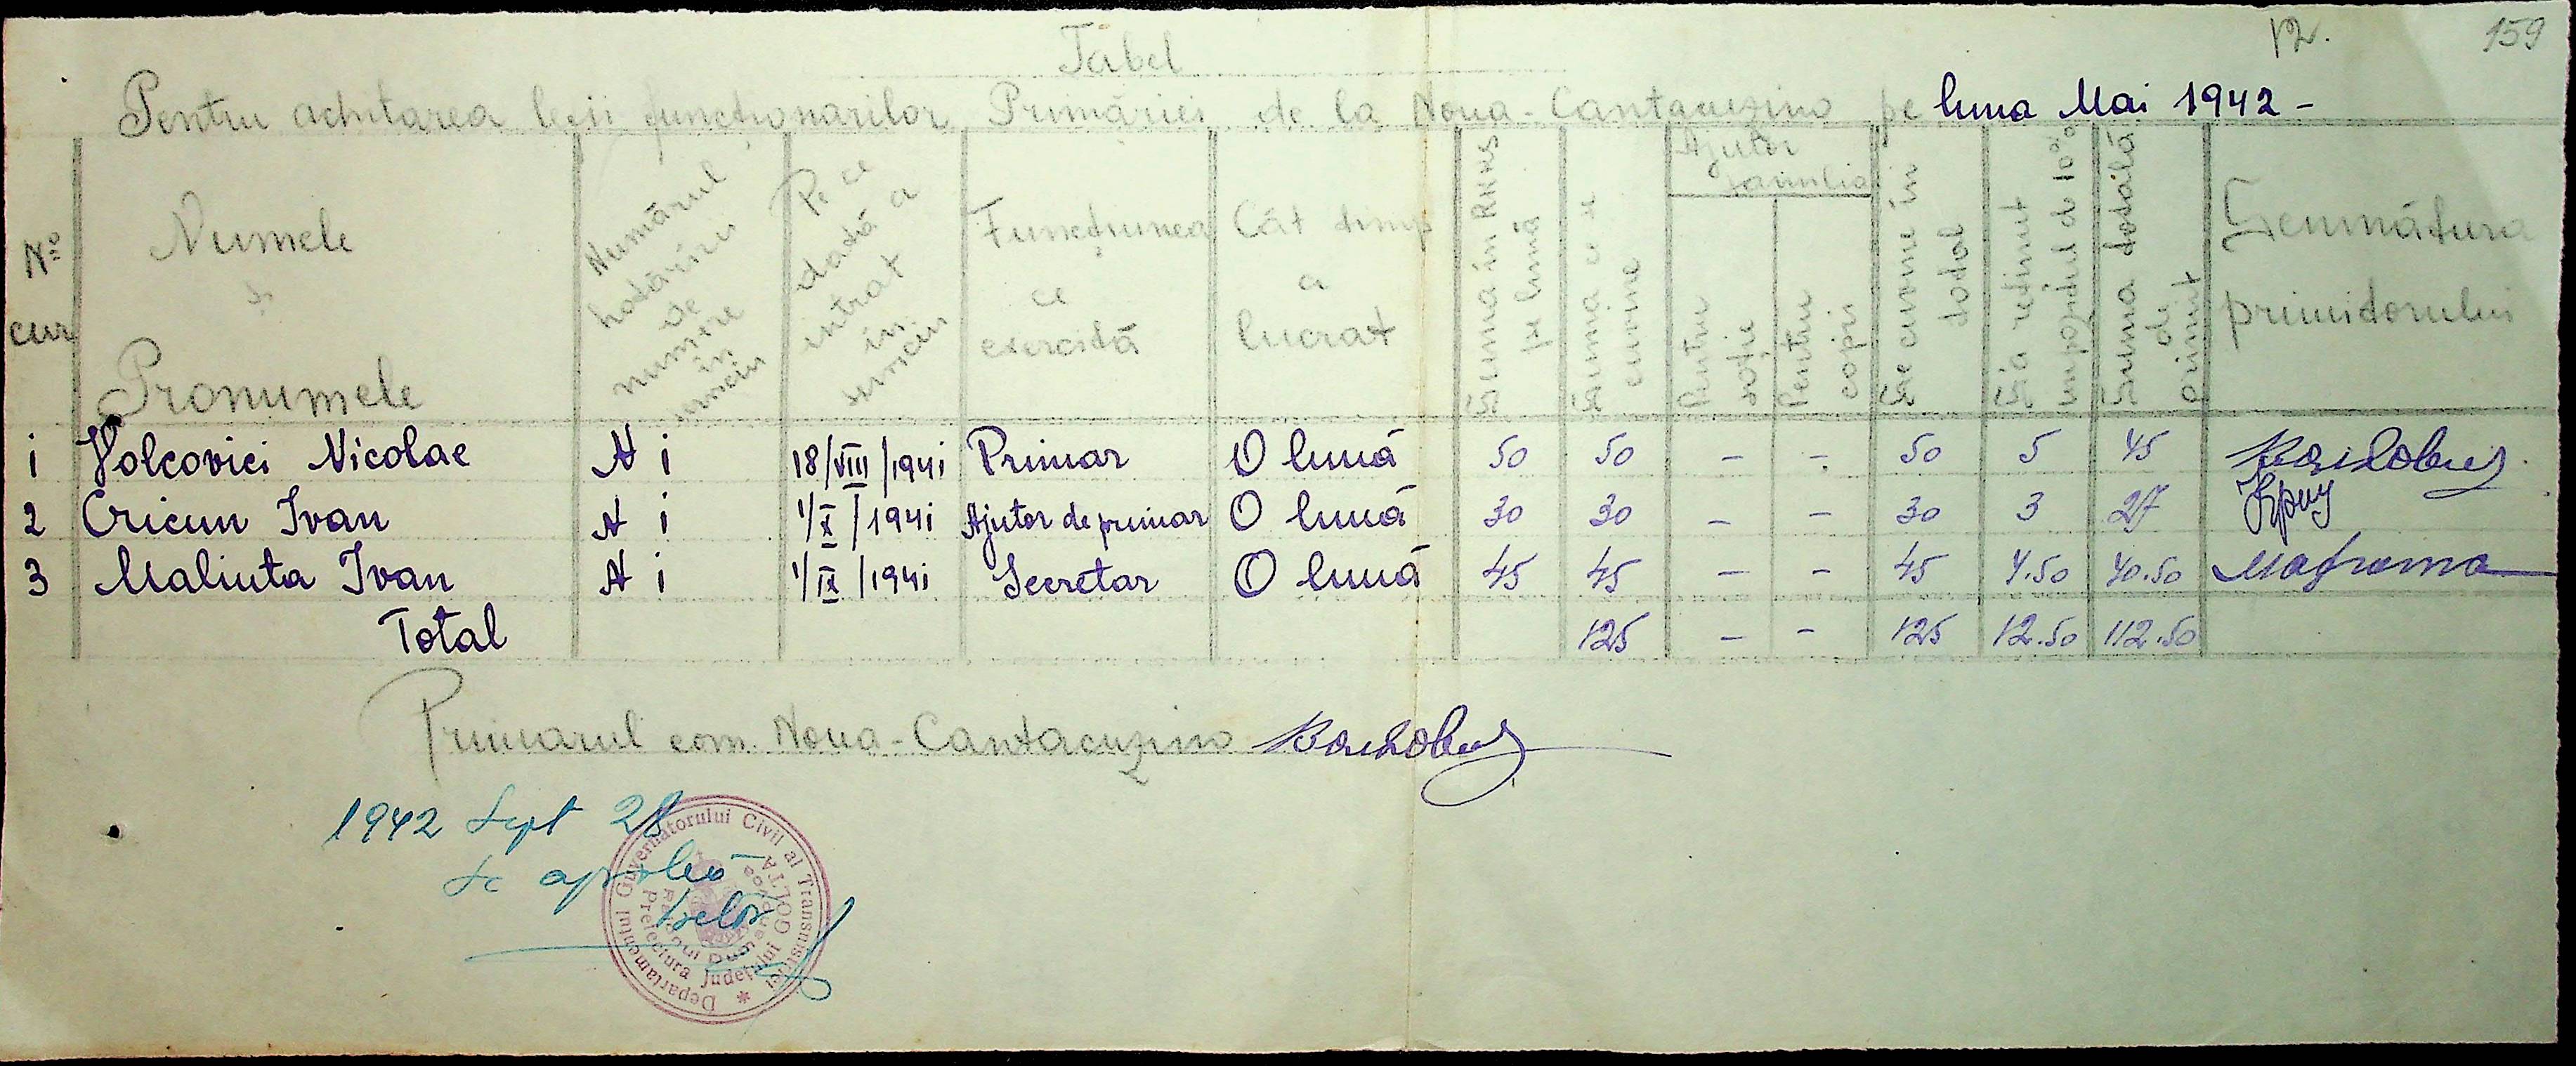 12. 159
Tabel
Pentru achitarea lefii funcționarilor Primăriei de la Noua-Cantacuzino pe luna Mai 1942 -
№ cur
Numele și Pronumele
Numărul hotărîrii de numire în serviciu
Pe ce dată a intrat în serviciu
Funcțiunea ce exercită
Cât timp a lucrat
Suma în RKKS pe lună
Suma ce se cuvine
Ajutor familia
Pentru soție
Pentru copii
Se cuvine în total
S'a reținut impozitul de 10%
Suma totală de primit
Semnătura primitorului
1 Volcovici Nicolae № 1 18/VIII/1941 Primar O lună 50 50 - - 50 5 45
2 Cricun Ivan № 1 1/X/1941 Ajutor de primar O lună 30 30 - - 30 3 27
3 Maliuta Ivan № 1 1/IX/1941 Secretar O lună 45 45 - - 45 4.50 40.50
Total 125 - - 125 12.50 112.50
Primarul com. Noua-Cantacuzino
1942 Sept 28
Se aprobă
Departamentul Guvernatorului Civil al Transnistriei
Prefectura Județului GOLTA